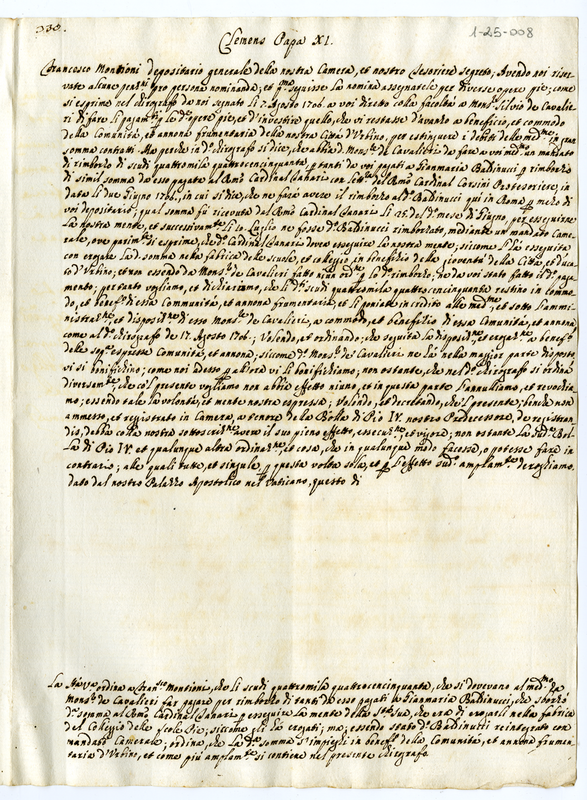 330.
1-25-008
Clemens Papa XI.
Francesco Montioni depositario generale della nostra Camera, et nostro Tesoriere segreto; Avendo noi riser-
vate alcune per persona nominanda; et seguisse la nomina assegnatele per diverse opere pie; come
si esprime nel chirografo da noi segnato li 7. Agosto 1706. a voi diretto colla facoltà a Monsr. Silvio de Cavalie-
ri di fare li pagamti. per le de. opere pie, et d'investire quello, che vi restasse d'avanzo a beneficio, et commodo
della Comunità, et annona frumentaria della nostra Città d'Urbino, per estinguere i debiti delle medme. in gran
somma contratti. Ma perche in do. chirografo si dice, che abbia Monsre. de Cavalieri da fare a voi un mandato
di rimborso di scudi quattromila quattrocencinquanta, p tanti da voi pagati a Gianmaria Baldinucci p rimborso
di simil somma da esso pagata al Rmo. Cardinal Tanari con del Rmo. Cardinal Corsini Protesoriere, in
data li due Giugno 1706., in cui si dice, che ne farà avere il rimborso al do. Baldinucci qui in Roma p mezo di
voi depositario, qual somma fù ricevuta dal Rmo. Cardinal Tanari li 25. del do. mese di Giugno, per eseguirne
la nostra mente, et successivamte. li 10. Luglio ne fosse do. Baldinucci rimborsato, mediante un mandato Came-
rale, ove parimte. si esprime, che do. Cardinal Tanari dovea eseguire la nostra mente; siccome l'ha eseguita
con erogare la do. somma nella fabrica delle scuole, et collegio, in beneficio della gioventù della Città, et Duca-
to d'Urbino; et non essendo da Monsre. de Cavalieri fatto p lo do. rimborso, ne da voi stato fatto il do. paga-
mento; per tanto vogliamo, et dichiariamo, che li di. scudi quattromila quattrocencinquanta restino in commo-
do, et benefo. di essa Comunità, et annona frumentaria; et li poniate in credito alle medme., et sotto l'ammi-
nistrane., et disposizne. di esso Monsre. de Cavalieri, a commodo, et beneficio di essa Comunità, et annona
come al do. chirografo de 17. Agosto 1706.; Volendo, et ordinando, che seguita la disposizne., et erogazne. a benefo.
delle sopra espresse Comunità, et annona, siccome do. Monsre. de Cavalieri ne ha nella maggior parte disposto
vi si bonifichino; come noi adesso p allora vi li bonifichiamo; non ostante, che nel do. chirografo si ordina
diversamte., che col presente vogliamo non abbia effetto niuno, et in questa parte l'annulliamo, et revochia-
mo; essendo tale la volontà, et mente nostra espressa; Volendo, et decretando, che'l presente, benche non
ammesso, et registrato in Camera, a tenore della Bolla di Pio IV. nostro Predecessore, de registran-
dis, debba colla nostra sottoscrizne. avere il suo pieno effetto, essecuzne., et vigore; non ostante la suda. Bol-
la di Pio IV. et qualunque altra ordinazne., et cosa, che in qualunque modo facesse, o potesse fare in
contrario; alle quali tutte, et singule p questa volta sola, et p l'effetto sudo. amplamte. deroghiamo.
Dato dal nostro Palazzo Apostolico nel Vaticano, questo dì
La Stà Va. ordina a Fransco Montioni, che li scudi quattromila quattrocencinquanta, che si dovevano al medmo. da
Monsre. de Cavalieri far pagare per rimborso di tanti da esso pagati a Gianmaria Baldinucci, che sborsò
da. somma al Rmo. Cardinal Tanari p eseguire la mente della Stà. Sua, che era di erogarli nella fabrica
del Collegio delle scole Pie; siccome gli ha erogati; ma, essendo stato'l Baldinucci reintegrato con
mandato Camerale; ordina, che la da. somma s'impieghi in benefo. della Comunità, et annona frumen-
taria d'Urbino, et come più amplamte. si contiene nel presente Chirografo